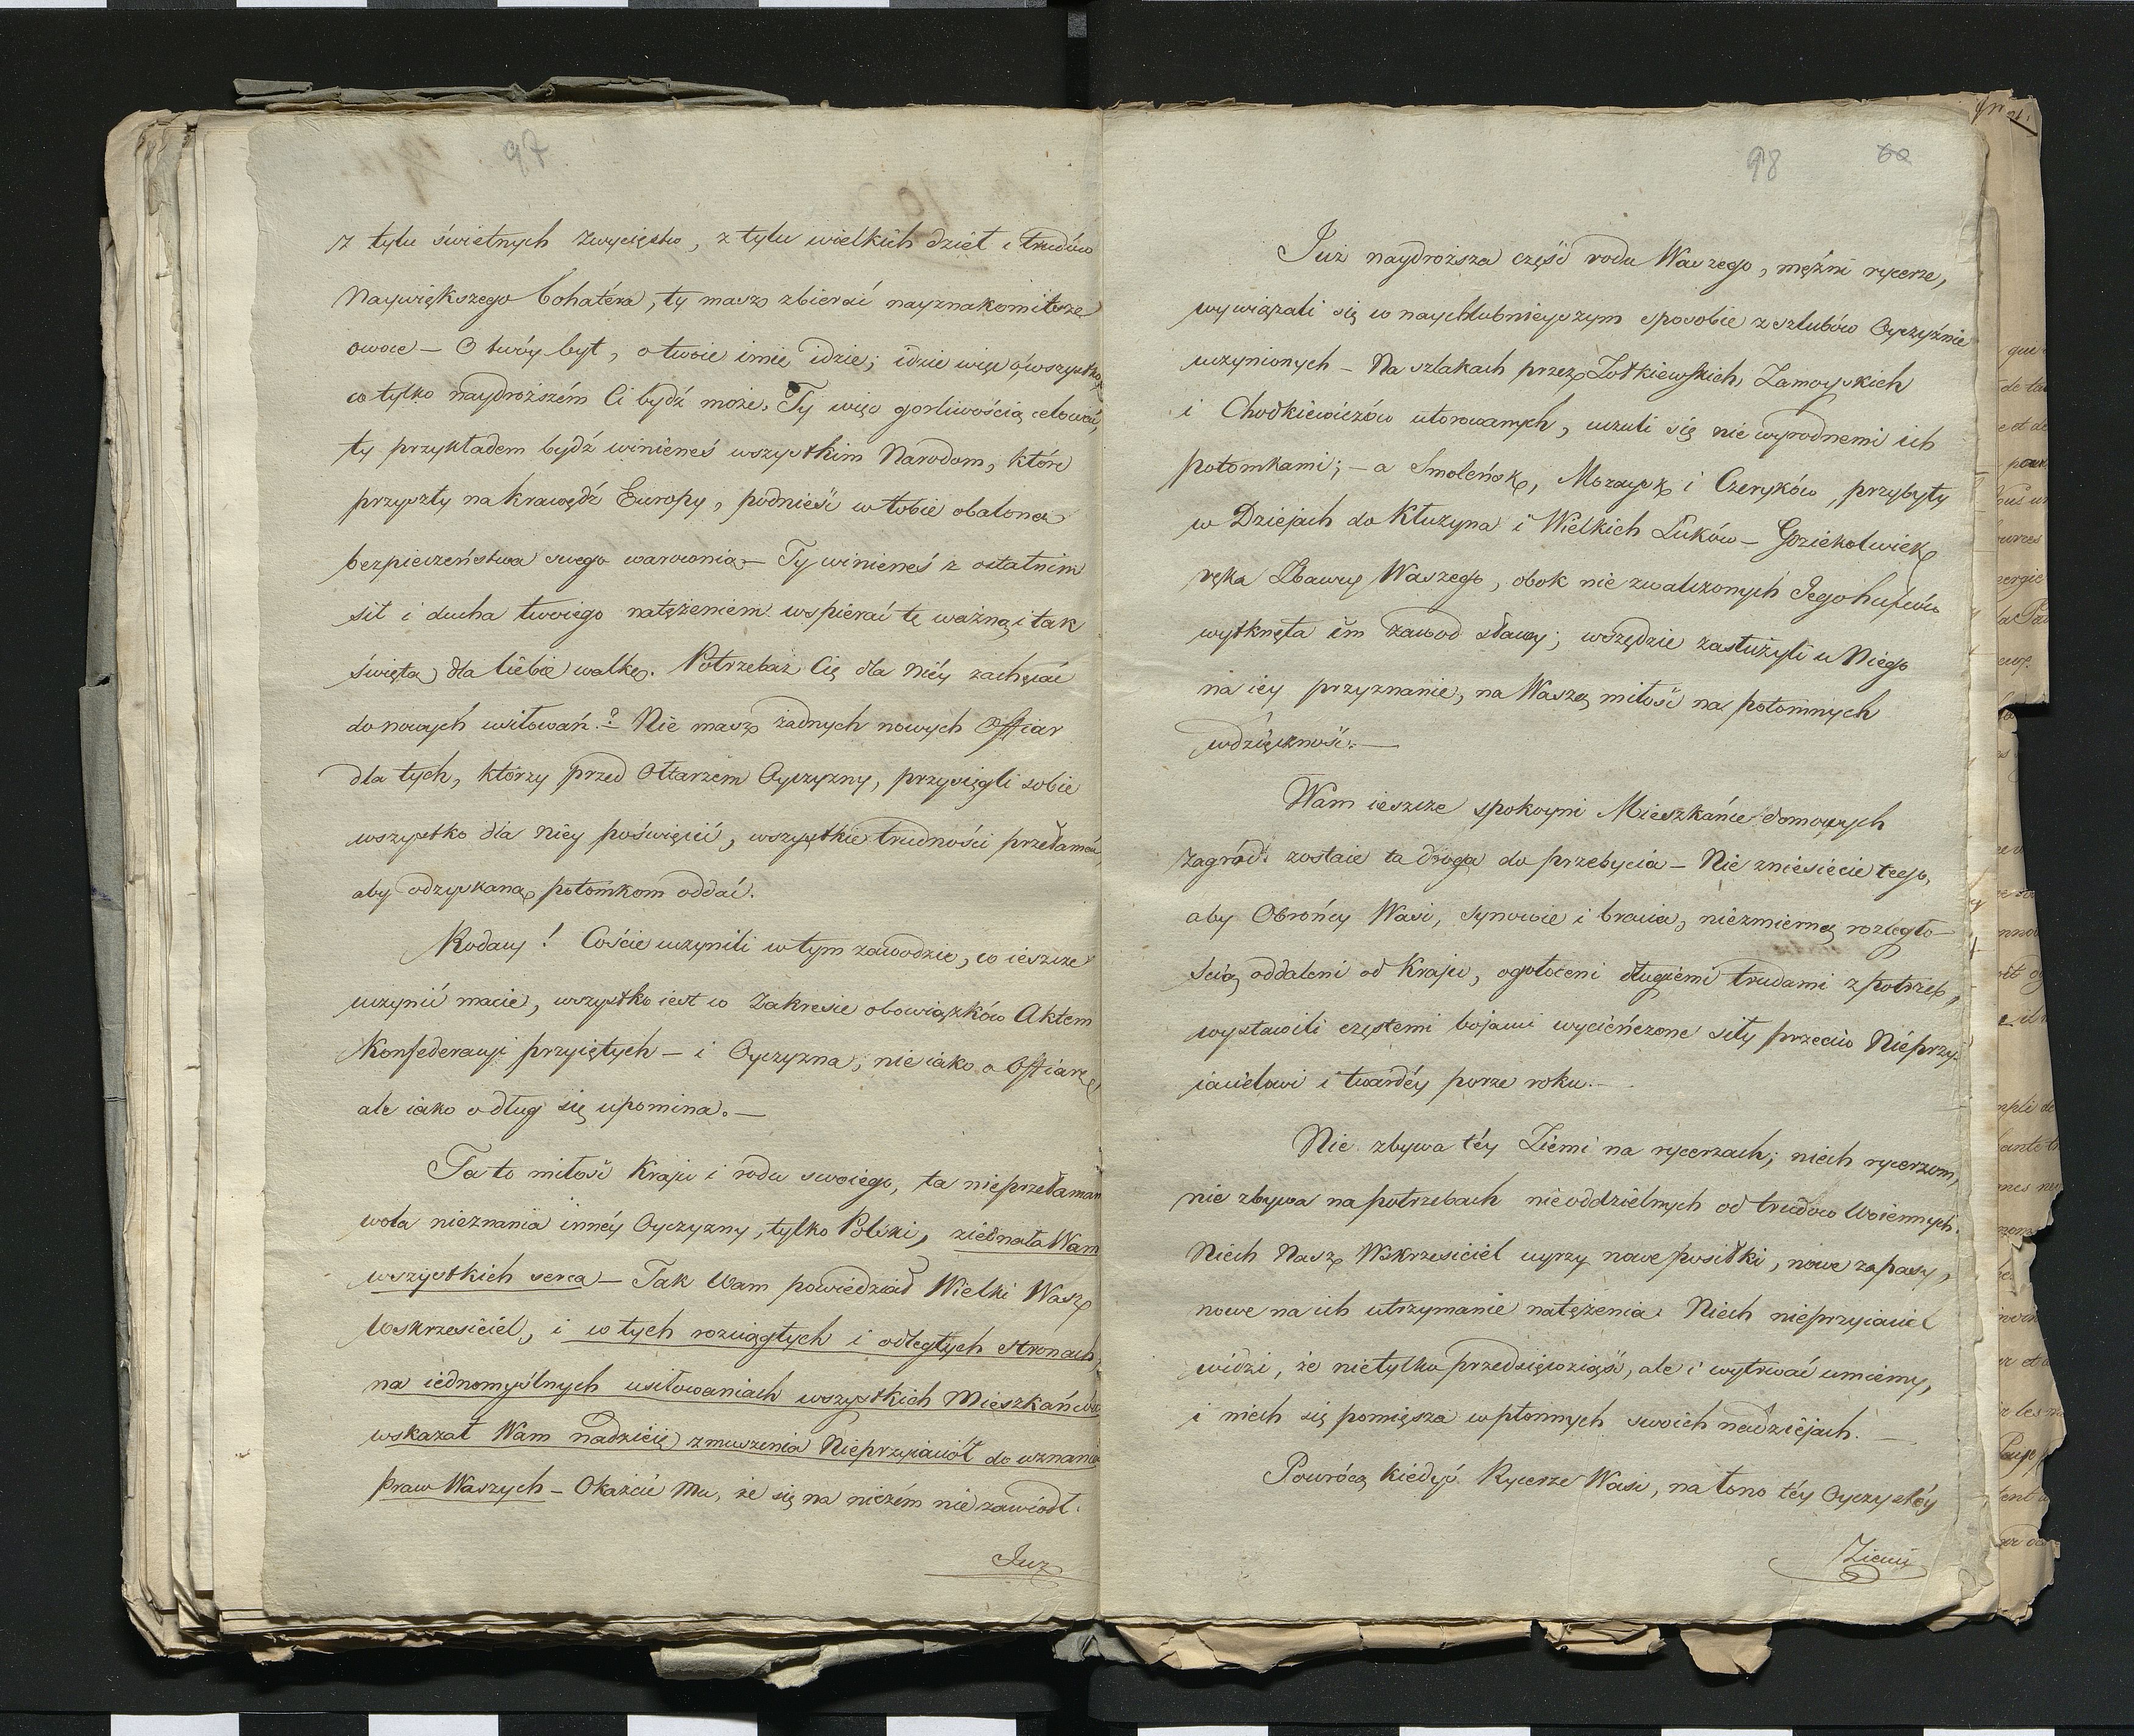 97
z tylu świetnych zwycięstw, z tylu wielkich dzieł i trudów
Naywiększego bohatéra, ty masz zbierać nayznakomitsze
owoce – O twóy byt, o twoie imie idzie; idzie więc o wszystko
co tylko naydroższém Ci bydź może. Ty więc gorliwością celować,
ty przykładem bydź winieneś wszystkim Narodom, które
przyszły na krawędź Europy, podnieść w tobie obaloną
bezpieczeństwa swego warownią – Ty winieneś z ostatnim
sił i ducha twoiego natężeniem wspierać tę ważną i tak
świętą dla Ciebie walkę. Potrzebaż Cię dla niéy zachęcać
do nowych usiłowań? – Nie masz żadnych nowych Offiar
dla tych, którzy przed Ołtarzem Oyczyzny, przysięgli sobie
wszystko dla niéy poświęcić, wszystkie trudności przełamać,
aby odzyskaną potomkom oddać.
Rodacy! Coście uczynili w tym zawodzie, co ieszcze
uczynić macie, wszystko iest w Zakresie obowiązków Aktem
Konfederacyi przyiętych – i Oyczyzna, nie iako o Offiarę
ale iako o dług się upomina. –
Ta to miłość Kraju i rodu swoiego, ta nieprzełaman
wola nieznania innéy Oyczyzny, tylko Polski, ziednała Wam
wszystkich serca – Tak Wam powiedział Wielki Wasz
Wskrzesiciel, i w tych rozciągłych i odległych stronach,
na iednomyślnych usiłowaniach wszystkich Mieszkańców
wskazał Wam nadzieię zmuszenia Nieprzyiaciół do uznania
praw Waszych – Okażcie Mu, że się na niczém nie zawiódł.
Już
98 60
Już naydroższa część rodu Waszego, mężni rycerze,
wywiązali się w naychlubnieyszym sposobie z szlubów Oyczyźnie
uczynionych – Na szlakach przez Żołkiewskich, Zamoyskich
i Chodkiewiczów utorowanych, uczuli się nie wyrodnemi ich
potomkami; – a Smoleńsk, Mozaysk i Czeryków, przybyły
w Dziejach do Kłuzyna i Wielkich Łuków – Gdziekolwiek
ręka Zbawcy Waszego, obok nie zwalczonych Jego hufców
wytknęła im zawod sławy; wszędzie zasłużyli u Niego
na iéy przyznanie, na Waszą miłość na potomnych
wdzięczność. –
Wam ieszcze spokoyni Mieszkańce domowych
zagród zostaie ta droga do przebycia – Nie zniesiecie tego,
aby Obrońcy Wasi, synowie i bracia, niezmierną rozległo-
ścią oddaleni od Kraju, ogołoceni długiemi trudami z potrzeb,
wystawili częstemi bojami wycieńczone siły przeciw Nieprzy-
iacielowi i twardéy porze roku. –
Nie zbywa téy Ziemi na rycerzach; niech rycerzom,
nie zbywa na potrzebach nieoddzielnych od trudów Woiennych.
Niech Nasz Wskrzesiciel uyrzy nowe posiłki, nowe zapasy,
nowe na ich utrzymanie natężenia. Niech nieprzyiaciel
widzi, że nietylko przedsięwziąść, ale i wytrwać umiemy,
i niech się pomięsza w płonnych swoich nadziejach. –
Powrócą kiedyś Rycerze Wasi, na łono téy Oyczystéy
Ziemi